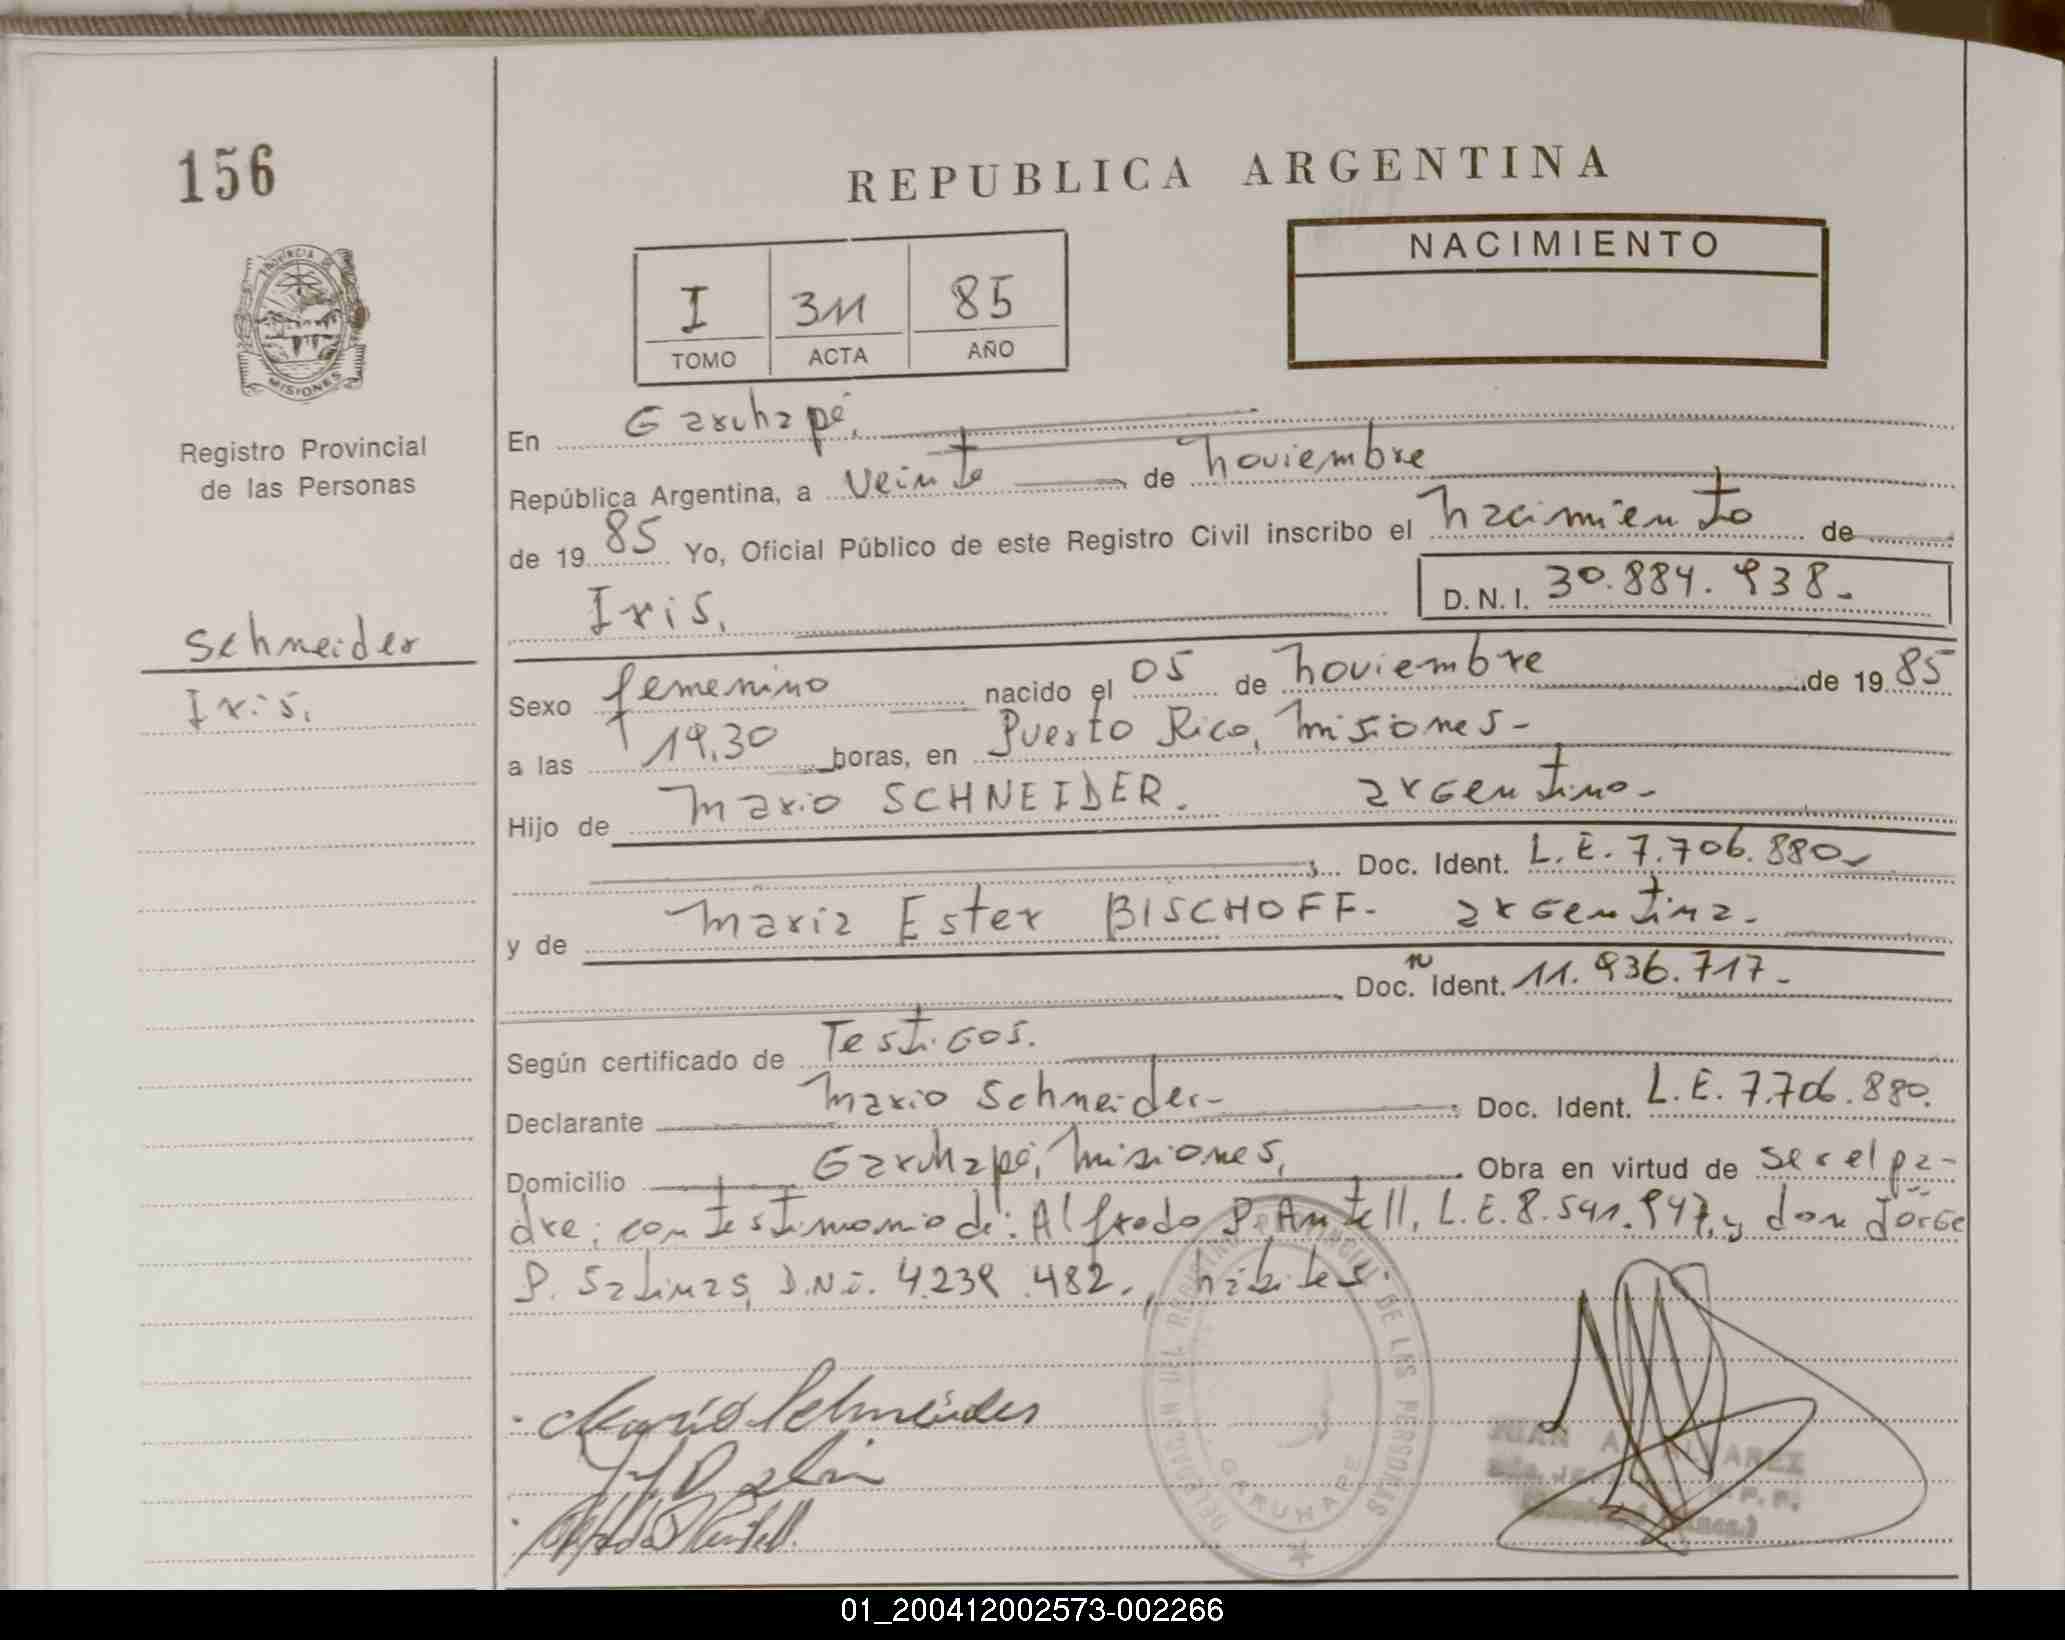 156
REPUBLICA ARGENTINA
NACIMIENTO
I 311 85
TOMO ACTA AÑO
PROVINCIA DE
MISIONES
Registro Provincial
de las Personas
Schneider
Iris.
En Garuhapé,
República Argentina, a veinte de noviembre
de 1985 Yo, Oficial Público de este Registro Civil inscribo el nacimiento de
Iris, D.N.I. 30.884.938.-
Sexo femenino nacido el 05 de noviembre de 1985
a las 19,30 horas, en Puerto Rico, Misiones-
Hijo de Mario SCHNEIDER. argentino-
Doc. Ident. L.E. 7.706.880-
y de Maria Ester BISCHOFF- argentina-
Doc. Ident. 11.936.717-
Según certificado de Testigos.
Declarante Mario Schneider- Doc. Ident. L.E. 7.706.880.
Domicilio Garuhapé, Misiones, Obra en virtud de ser el pa-
dre; con testimonio de: Alfredo P. Antell, L.E. 8.541.947, y don Jorge
P. Salinas, D.N.I. 4.239.482., hábiles.
Mario Schneider
DELEGACION DEL REGISTRO PROVINCIAL DE LAS PERSONAS
GARUHAPE
JUAN A. ALVAREZ
01_200412002573-002266